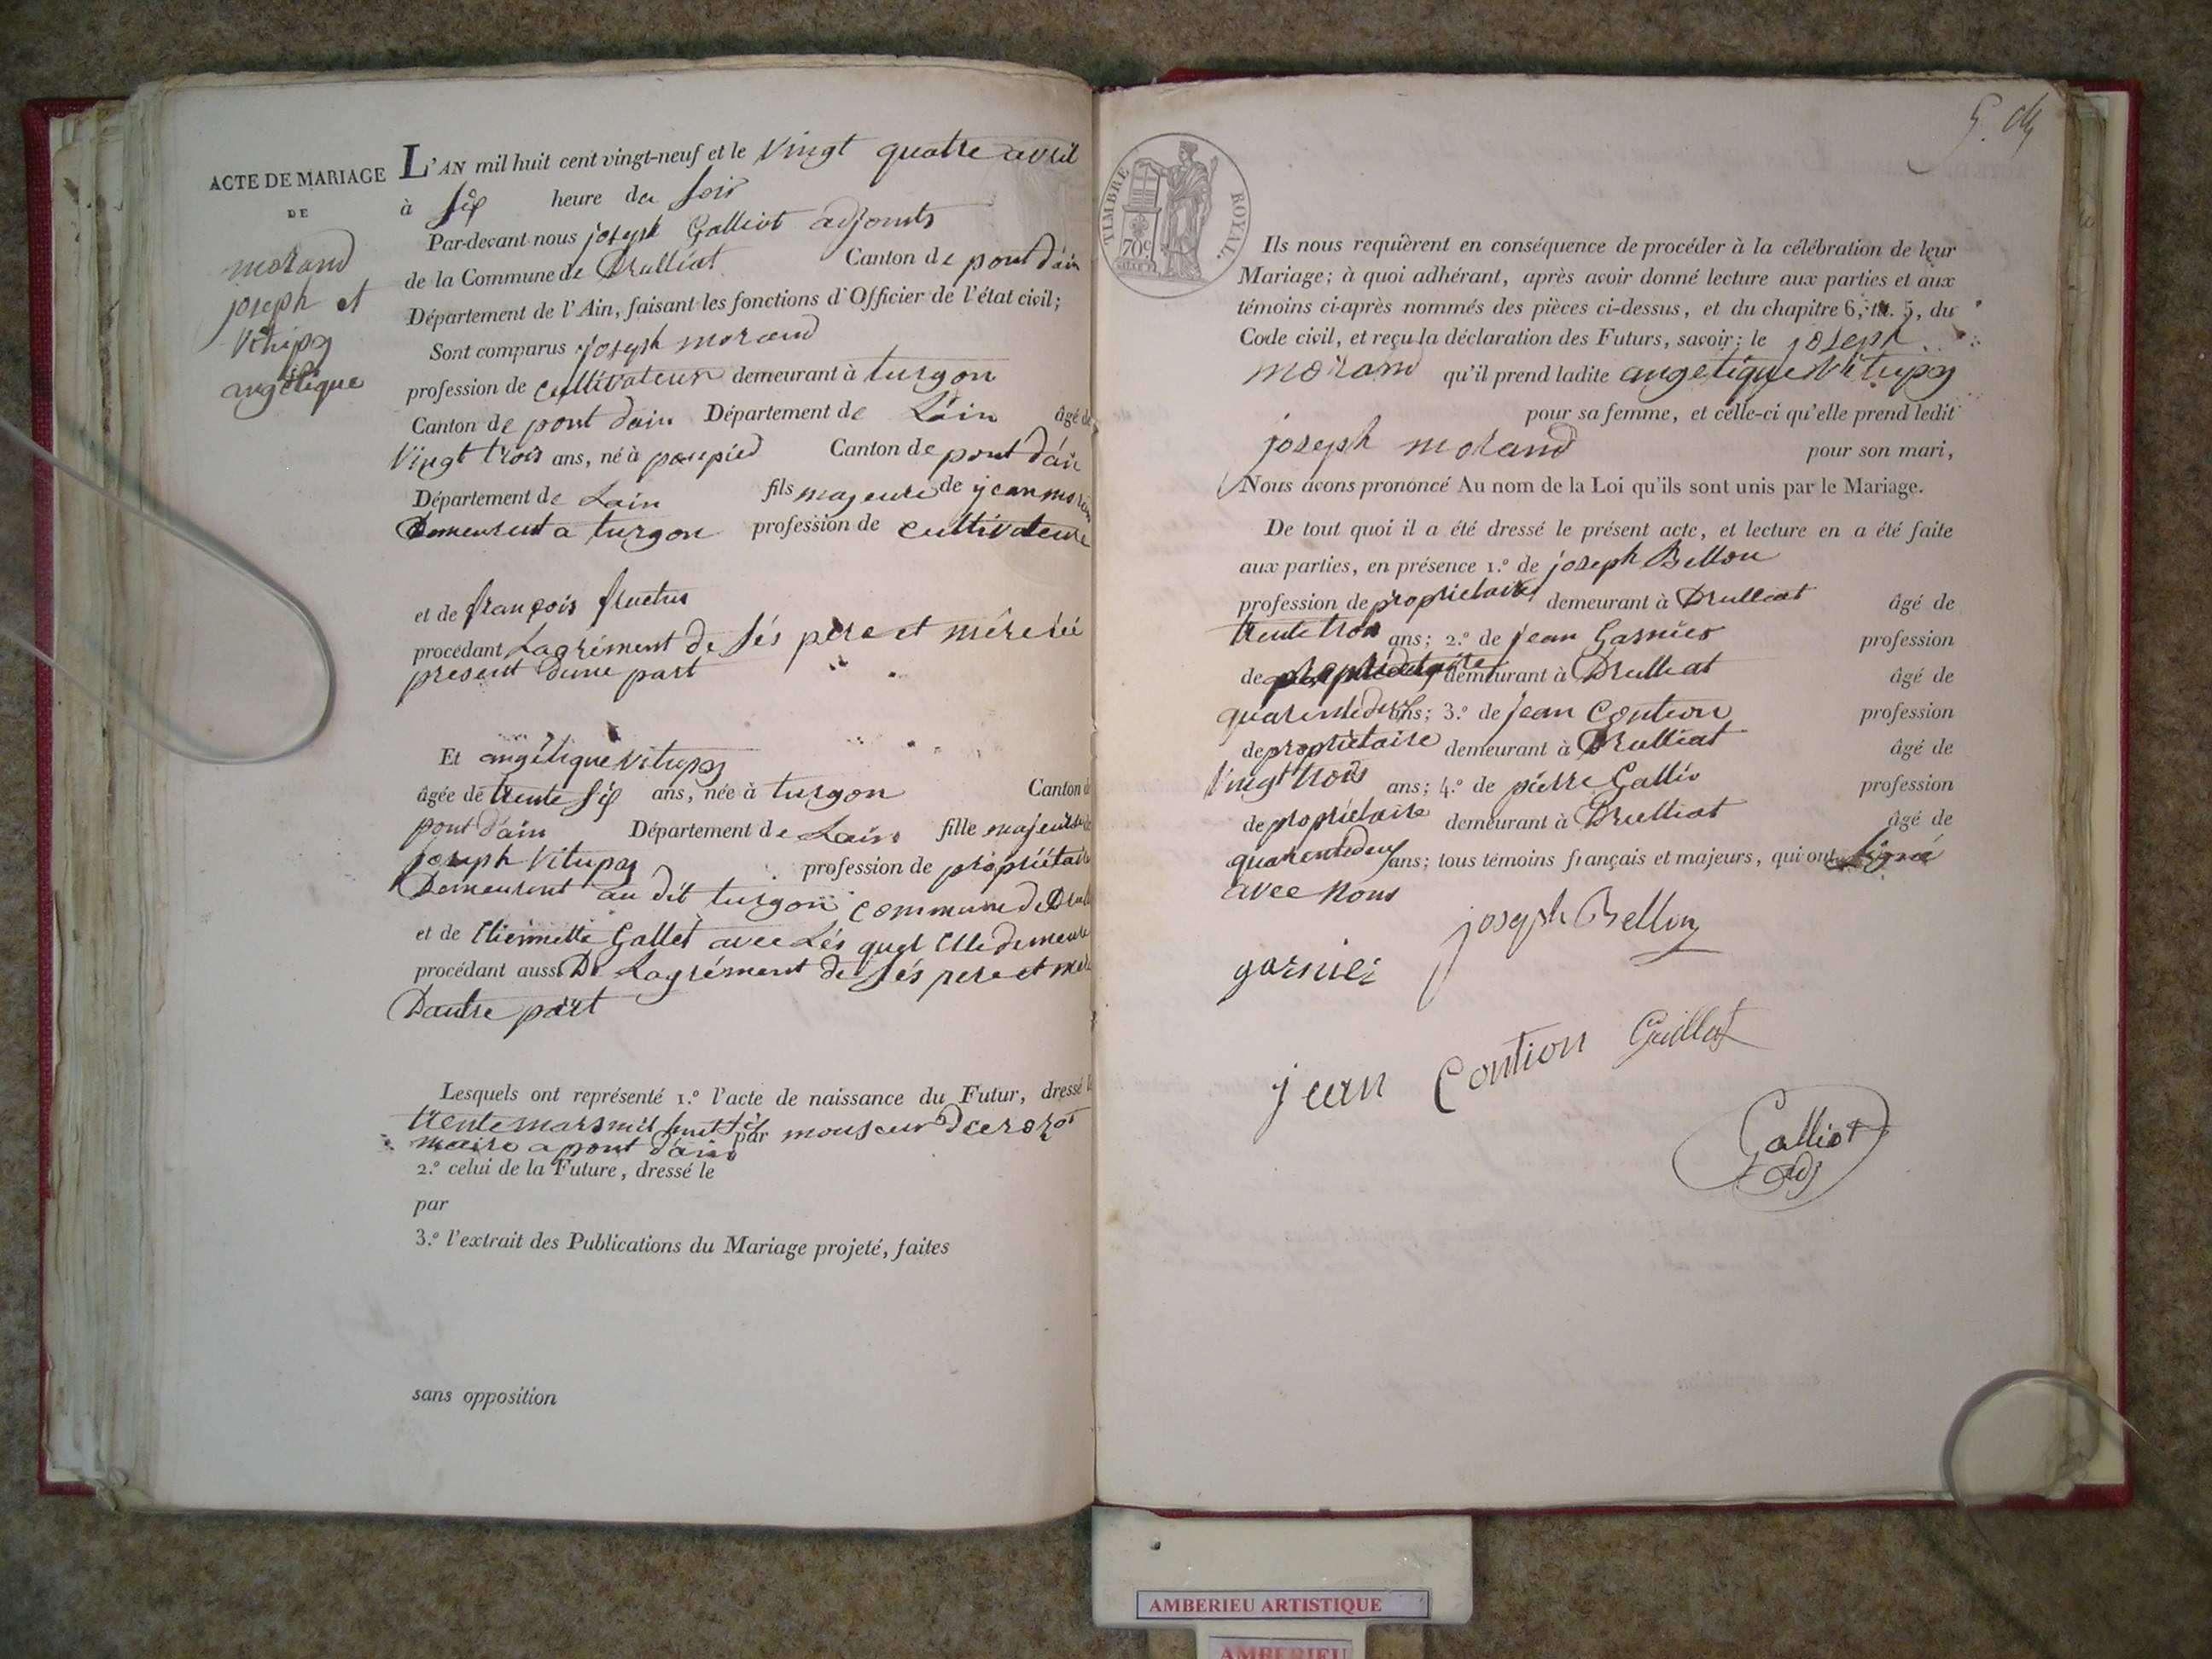 ACTE DE MARIAGE
DE
morand
joseph et
Vitupy
angélique
L'AN mil huit cent vingt-neuf et le Vingt quatre avril
à six heure du soir
Par-devant nous joseph Galliot adjoints
de la Commune de Drulliat Canton de pont d'ain
Département de l'Ain, faisant les fonctions d'Officier de l'état civil;
Sont comparus joseph morand
profession de cultivateur demeurant à turgon
Canton de pont dain Département de Lain âgé de
Vingt trois ans, né à Canton de pont d'ain
Département de Lain fils mageure de jean moran
Demeurent a turgon profession de cultivateure
et de françois fructus
procédant Lagrément de sés père et mére ici
present dune part
Et angélique Vitupy
âgée de trente six ans, née à turgon Canton de
pont d'ain Département de Lain fille majeure de
joseph Vitupy profession de propriétaire
Demeurent au dit turgon commune de
et de Etiennette Gallet avec Lés quel Elle demeure
procédant aussi De Lagrément de sés pere et mere
Dautre part
Lesquels ont représenté 1.º l'acte de naissance du Futur, dressé le
trente mars mil huit six par monsieur
maire a pont d'ain
2.º celui de la Future, dressé le
par
3.º l'extrait des Publications du Mariage projeté, faites
sans opposition
TIMBRE ROYAL.
70c.
Ils nous requièrent en conséquence de procéder à la célébration de leur
Mariage; à quoi adhérant, après avoir donné lecture aux parties et aux
témoins ci-après nommés des pièces ci-dessus, et du chapitre 6, tit. 5, du
Code civil, et reçu la déclaration des Futurs, savoir: le joseph
morand qu'il prend ladite angelique Vitupy
pour sa femme, et celle-ci qu'elle prend ledit
joseph morand pour son mari,
Nous avons prononcé Au nom de la Loi qu'ils sont unis par le Mariage.
De tout quoi il a été dressé le présent acte, et lecture en a été faite
aux parties, en présence 1.º de joseph Bellon
profession de propriétaire demeurant à Drulliat âgé de
trente trois ans; 2.º de jean Garnier profession
de propriétaire demeurant à Drulliat âgé de
quarentedeux ans; 3.º de jean Contion profession
de propriétaire demeurant à Drulliat âgé de
Vingt trois ans; 4.º de piérre Galliò profession
de propriétaire demeurant à Drulliat âgé de
quarentedeux ans; tous témoins français et majeurs, qui ont signé
avec nous
joseph Bellon
garnier
jean Contion Guillot
Galliot
adj
AMBERIEU ARTISTIQUE
AMBERIEU